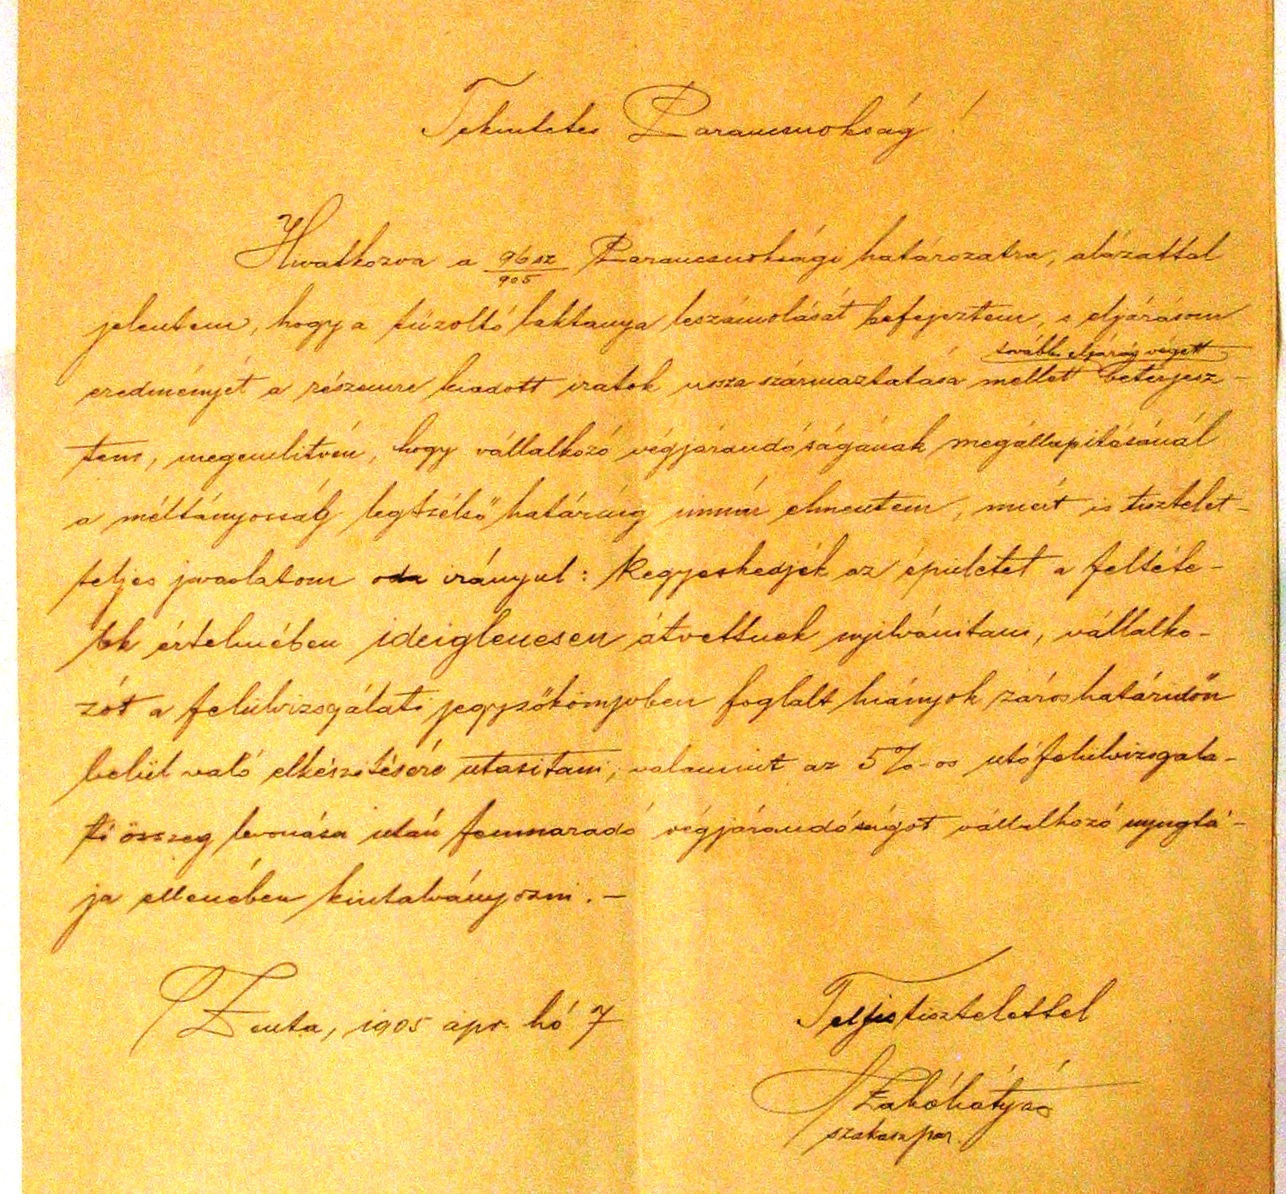 Tekintetes Parancsnokság!
Hivatkozva a 96 sz/905 Parancsnoksági határozatra, alázattal
jelentem, hogy a tűzoltó laktanya leszámolását befejeztem, s eljárásom
további eljárás végett
eredményét a részemre kiadott iratok vissza származtatása mellett beterjesz-
tem, megemlitvén, hogy vállalkozó végjárandóságának megállapitásánál
a méltányosság legszélső határáig immár elmentem, miért is tisztelet-
teljes javaslatom oda irányul: kegyeskedjék az épületet a feltéte-
lek értelmében ideiglenesen átvettnek nyilvánitani, vállalko-
zót a felülvizsgálati jegyzőkönyvben foglalt hiányok záros határidőn
belül való elkészitésére utasitani, valamint az 5%-os utófelülvizsgála-
ti összeg levonása után fennmaradó végjárandóságot vállalkozó nyugtá-
ja ellenében kiutalványozni. —
Zenta, 1905 ápr. hó 7
Teljes tisztelettel
szakaszpar.